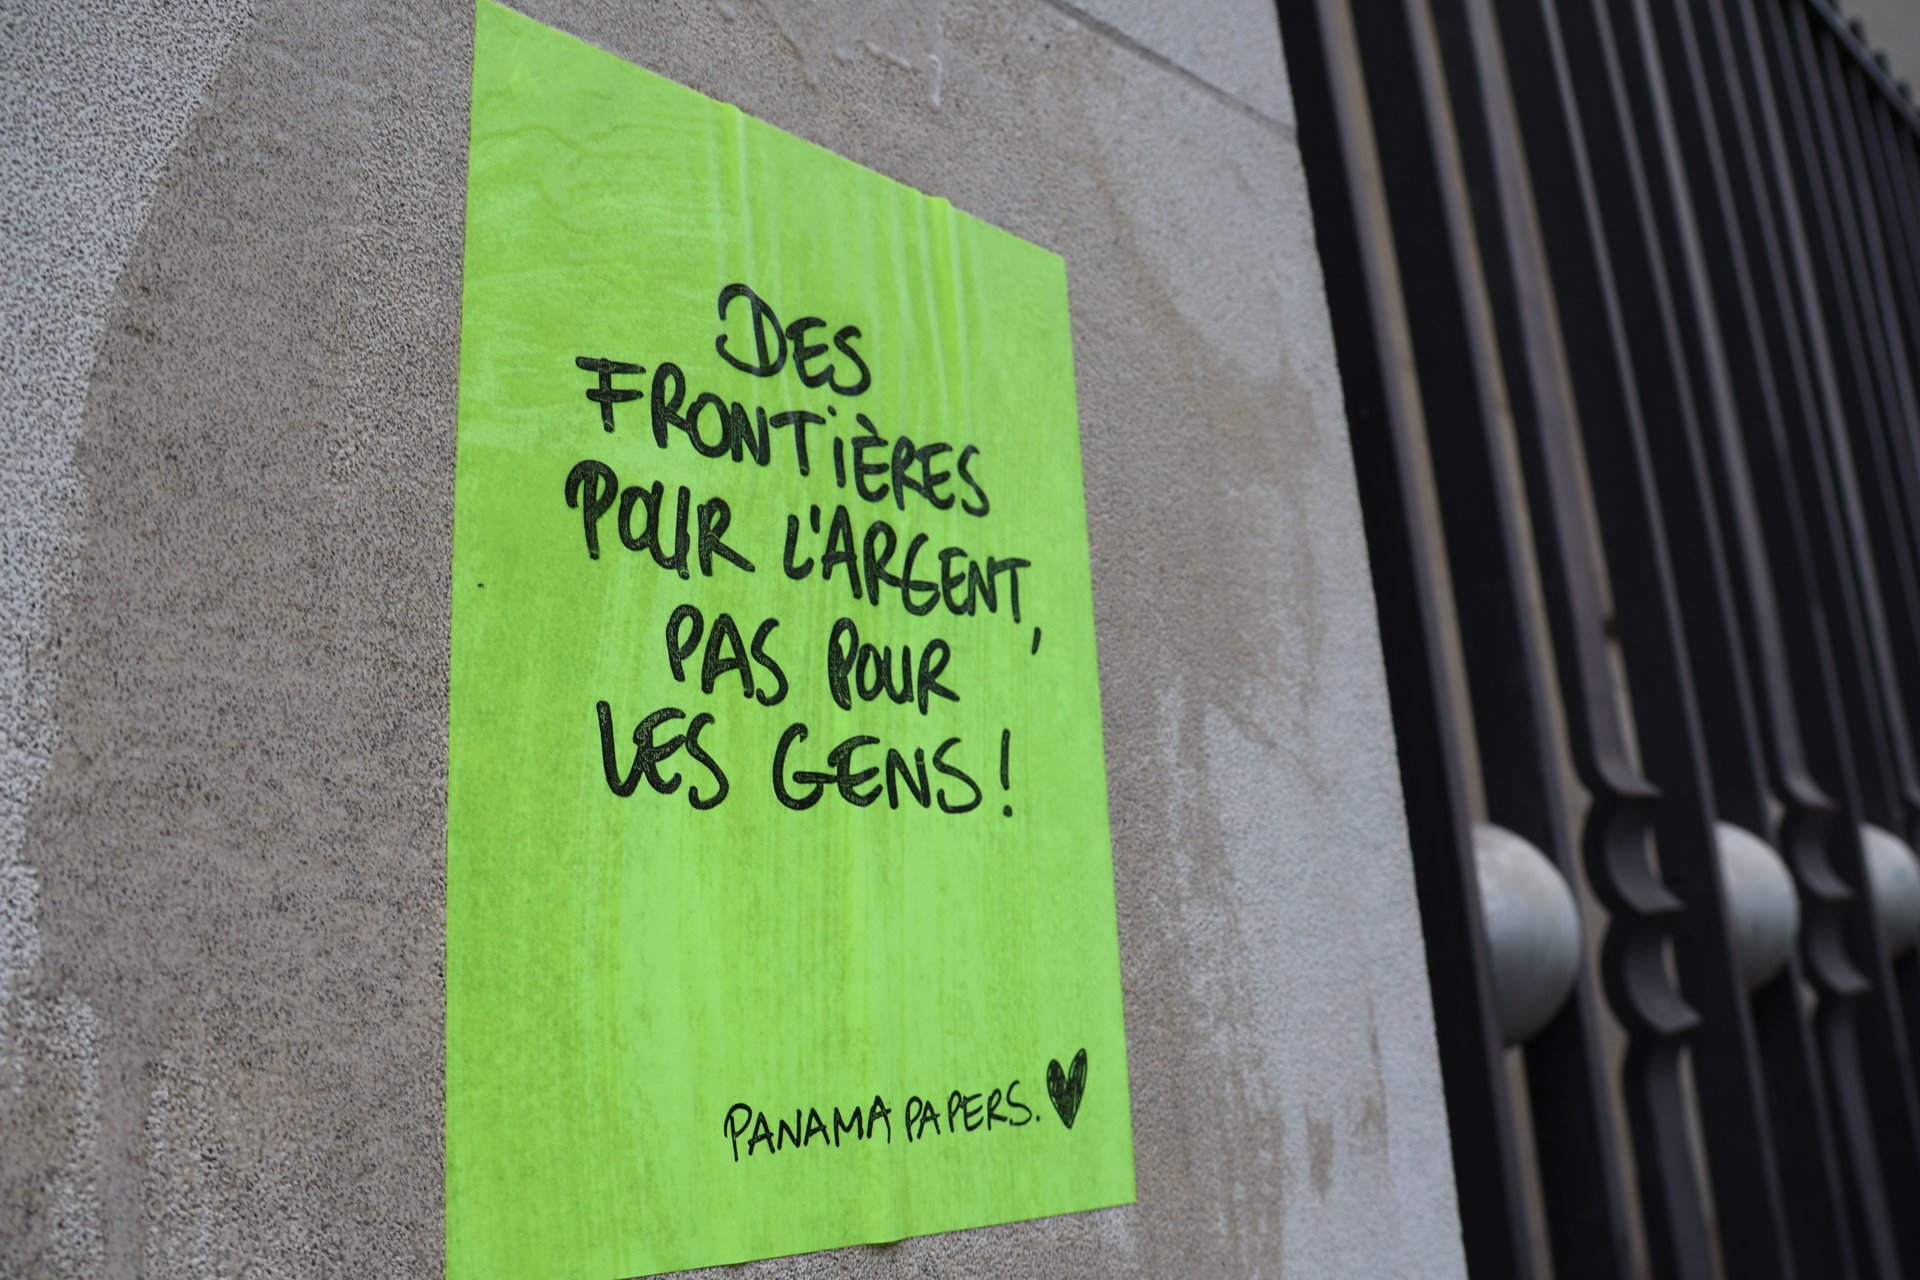 DES
FRONTIÈRES
POUR L'ARGENT,
PAS POUR
LES GENS !
PANAMA PAPERS. ♥